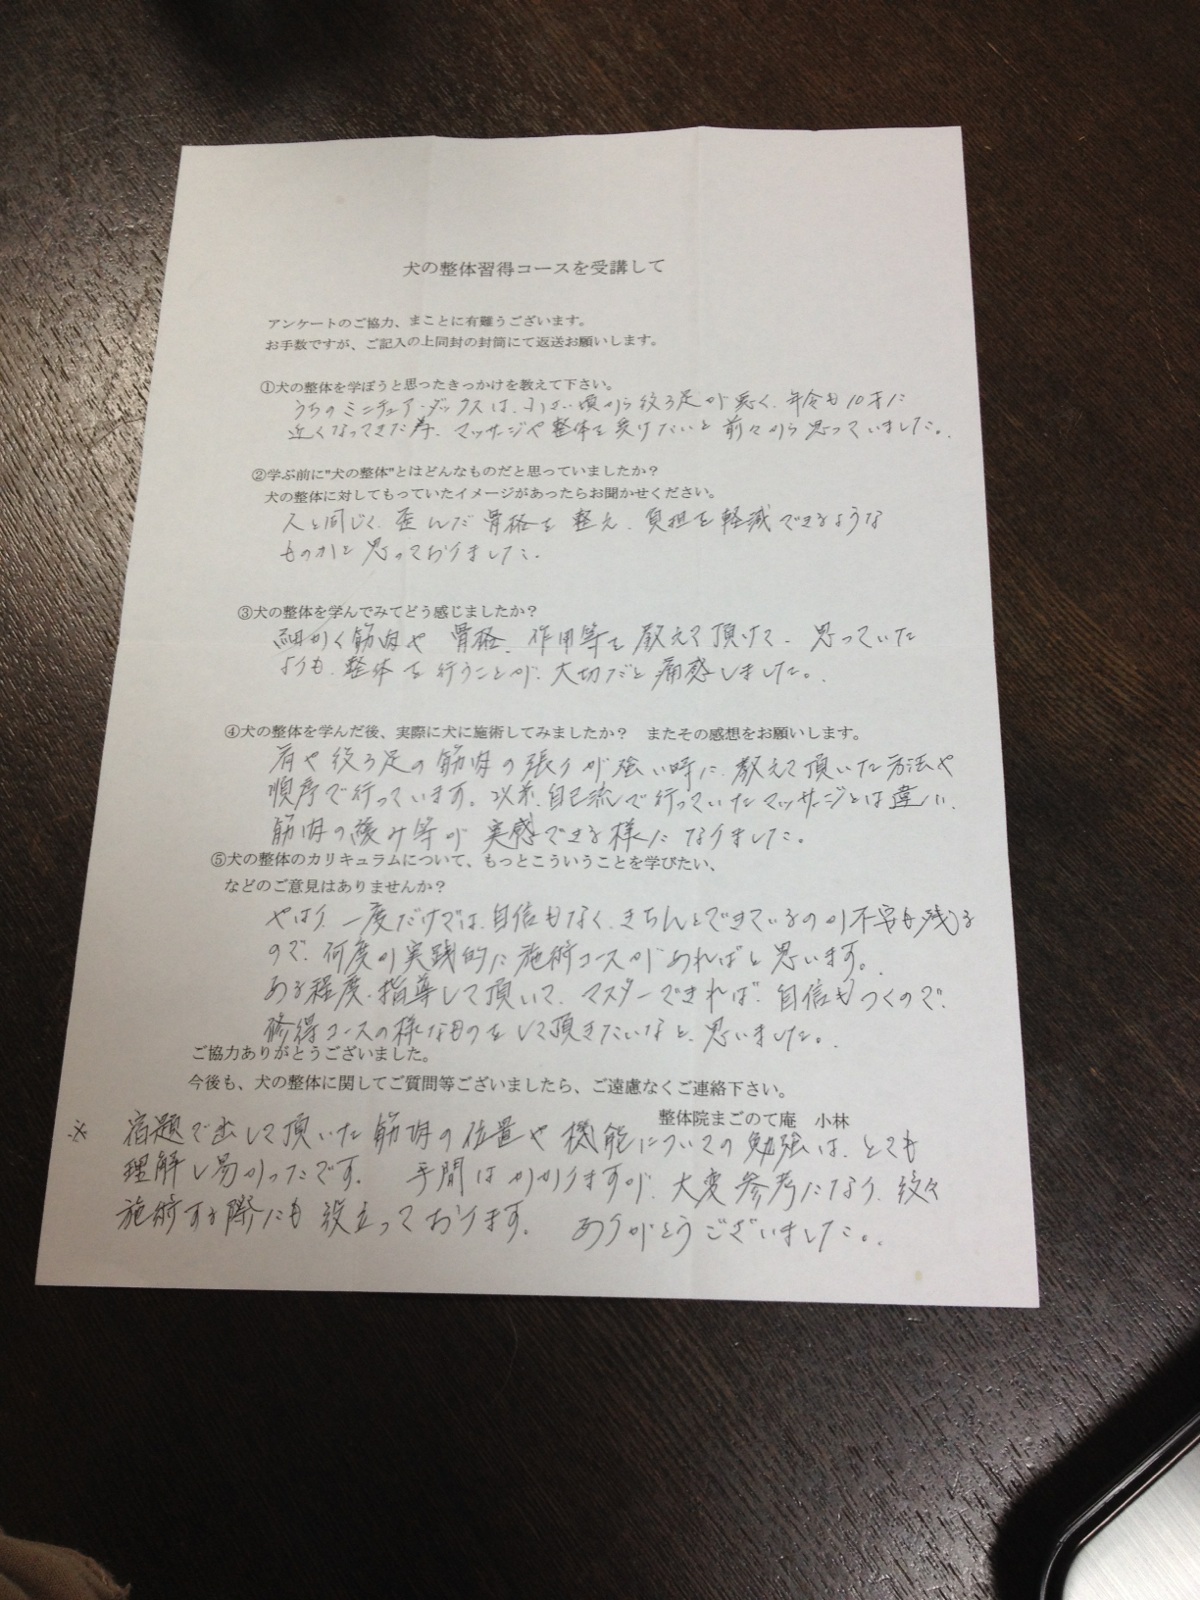 犬の整体習得コースを受講して
アンケートのご協力、まことに有難うございます。
お手数ですが、ご記入の上同封の封筒にて返送お願いします。
①犬の整体を学ぼうと思ったきっかけを教えて下さい。
うちのミニチュア・ダックスは、小さい頃から後ろ足が悪く、年令も10才に
近くなってきた為、マッサージや整体を受けたいと前々から思っていました。
②学ぶ前に"犬の整体"とはどんなものだと思っていましたか？
犬の整体に対してもっていたイメージがあったらお聞かせください。
人と同じく、歪んだ骨格を整え、負担を軽減できるような
ものかと思っておりました。
③犬の整体を学んでみてどう感じましたか？
細かく筋肉や骨格、作用等を教えて頂けて、思っていた
よりも、整体を行うことが、大切だと痛感しました。
④犬の整体を学んだ後、実際に犬に施術してみましたか？　またその感想をお願いします。
肩や後ろ足の筋肉の張りが強い時に、教えて頂いた方法や
順序で行っています。以前、自己流で行っていたマッサージとは違い、
筋肉の緩み等が実感できる様になりました。
⑤犬の整体のカリキュラムについて、もっとこういうことを学びたい、
などのご意見はありませんか？
やはり、一度だけでは、自信もなく、きちんとできているのか不安も残る
ので、何度か実践的に施術コースがあればと思います。
ある程度、指導して頂いて、マスターできれば、自信もつくので、
修得コースの様なものをして頂きたいなと、思いました。
ご協力ありがとうございました。
今後も、犬の整体に関してご質問等ございましたら、ご遠慮なくご連絡下さい。
整体院まごのて庵　小林
※ 宿題で出して頂いた筋肉の位置や機能についての勉強は、とても
理解し易かったです。　手間はかかりますが、大変参考になり、後々
施術する際にも役立っております。　ありがとうございました。